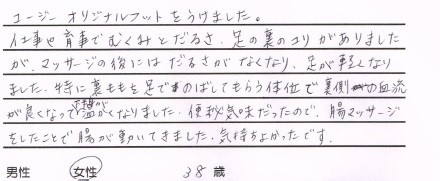 ユージー オリジナルフットをうけました。
仕事や育児でむくみとだるさ、足の裏のコリがありました
が、マッサージの後にはだるさがなくなり、足が軽くなり
ました。特に裏ももを足でのばしてもらう体位で裏側の血流
が良くなって温かくなりました。便秘気味だったので、腸マッサージ
をしたことで腸が動いてきました。気持ちよかったです。
男性 女性 38 歳